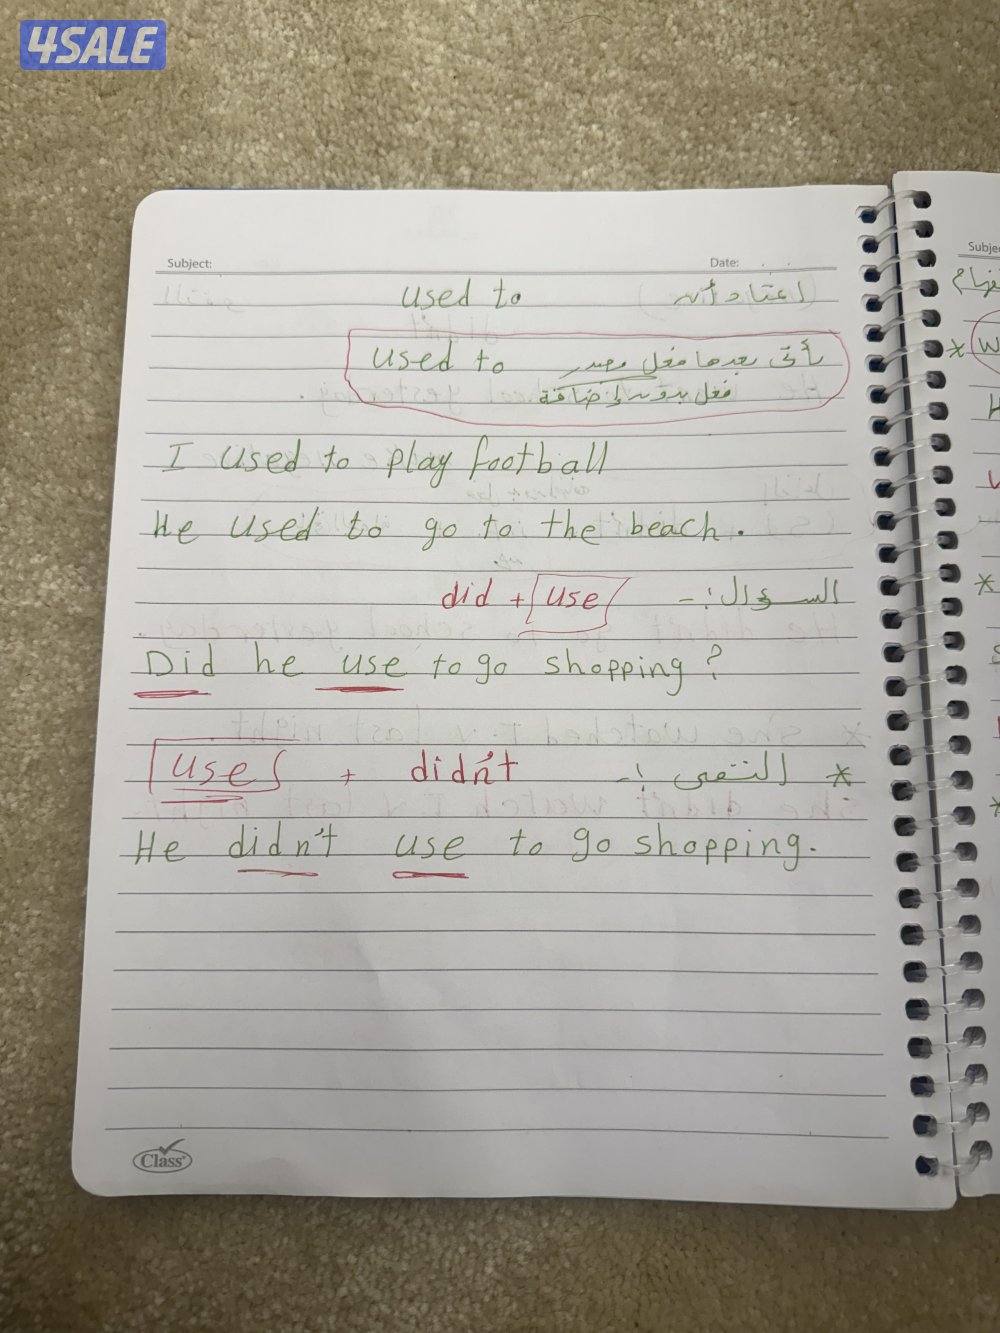 4SALE
Subject:
Date:
used to (اعتاد أن)
used to يأتي بعدها فعل مصدر
فعل بدون إضافة
I used to play football
He used to go to the beach.
السؤال :- did + use
Did he use to go shopping?
* النفى :- didn't + use
He didn't use to go shopping.
Class
Subje
*
*
*